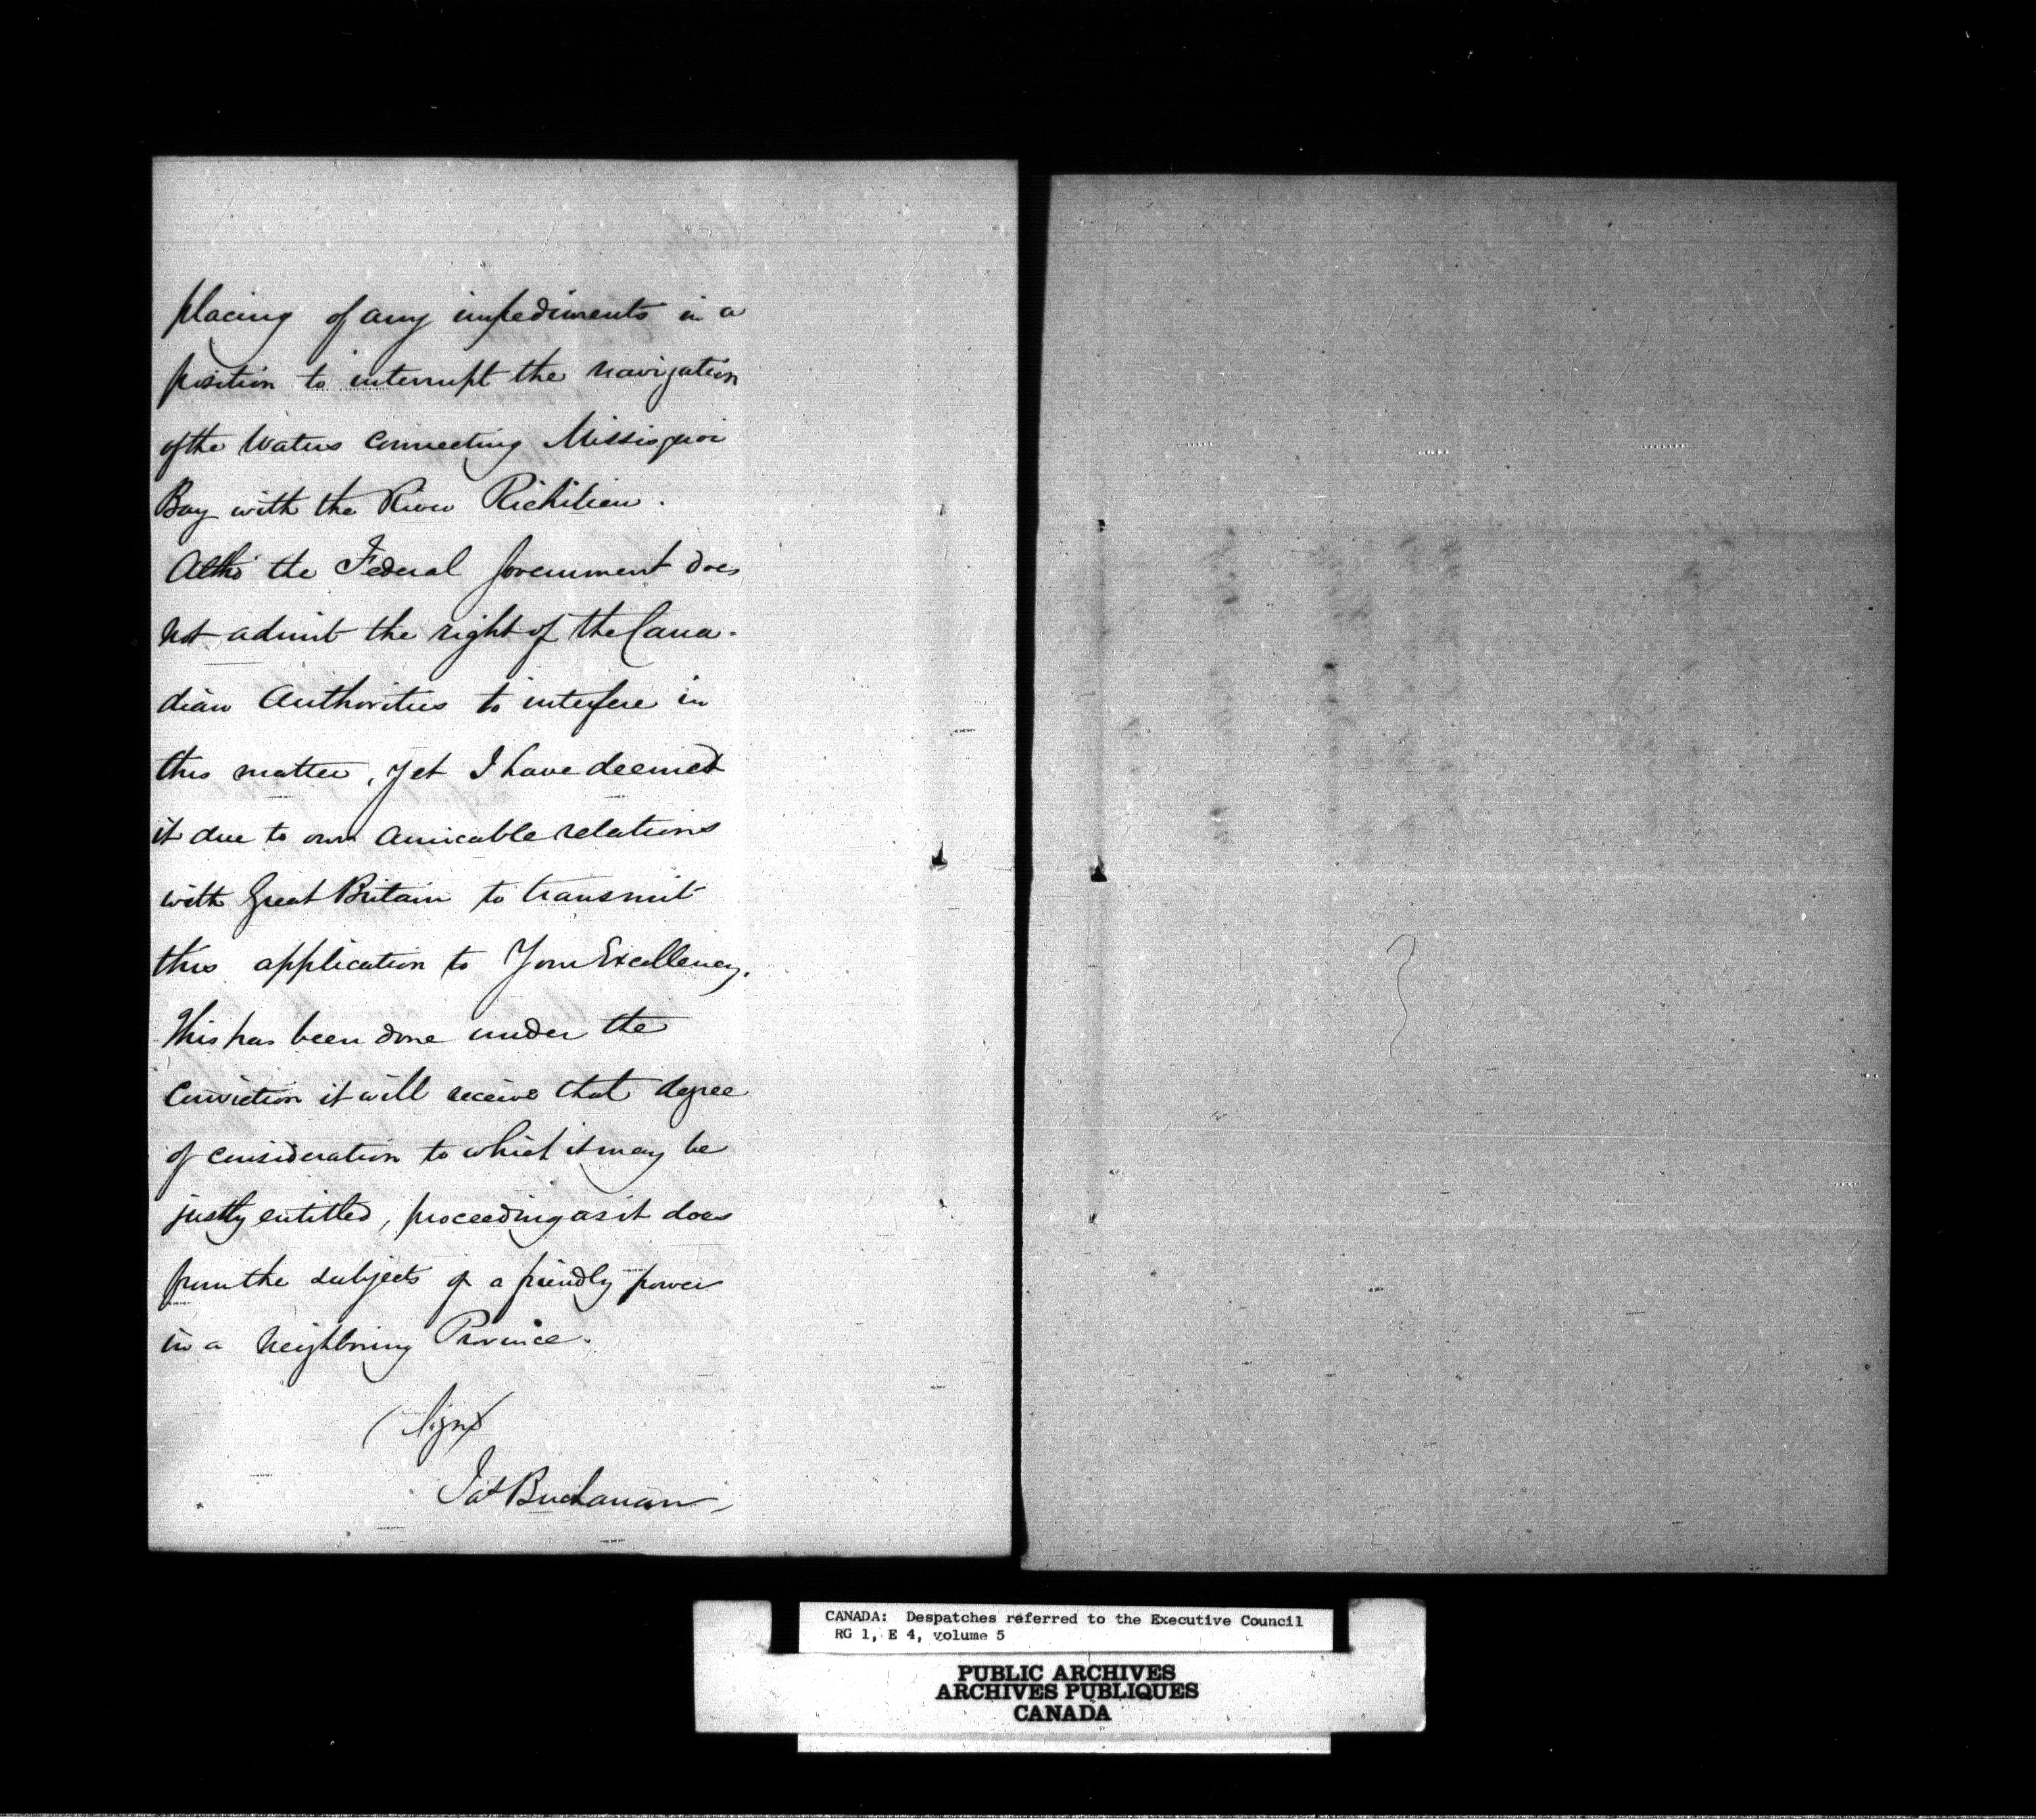 placing of any impediments in a
position to interrupt the navigation
of the Waters connecting Missisquoi
Bay with the River Richilieu.
Altho' the Federal Government does
not admit the right of the Cana-
dian Authorities to interfere in
this matter, yet I have deemed
it due to our amicable relations
with Great Britain to transmit
this application to Your Excellency.
This has been done under the
Conviction it will receive that degree
of consideration to which it may be
justly entitled, proceeding as it does
from the subjects of a friendly power
in a neighbouring Province.
(Signd
Jas Buchanan
CANADA: Despatches referred to the Executive Council
RG 1, E 4, volume 5
PUBLIC ARCHIVES
ARCHIVES PUBLIQUES
CANADA